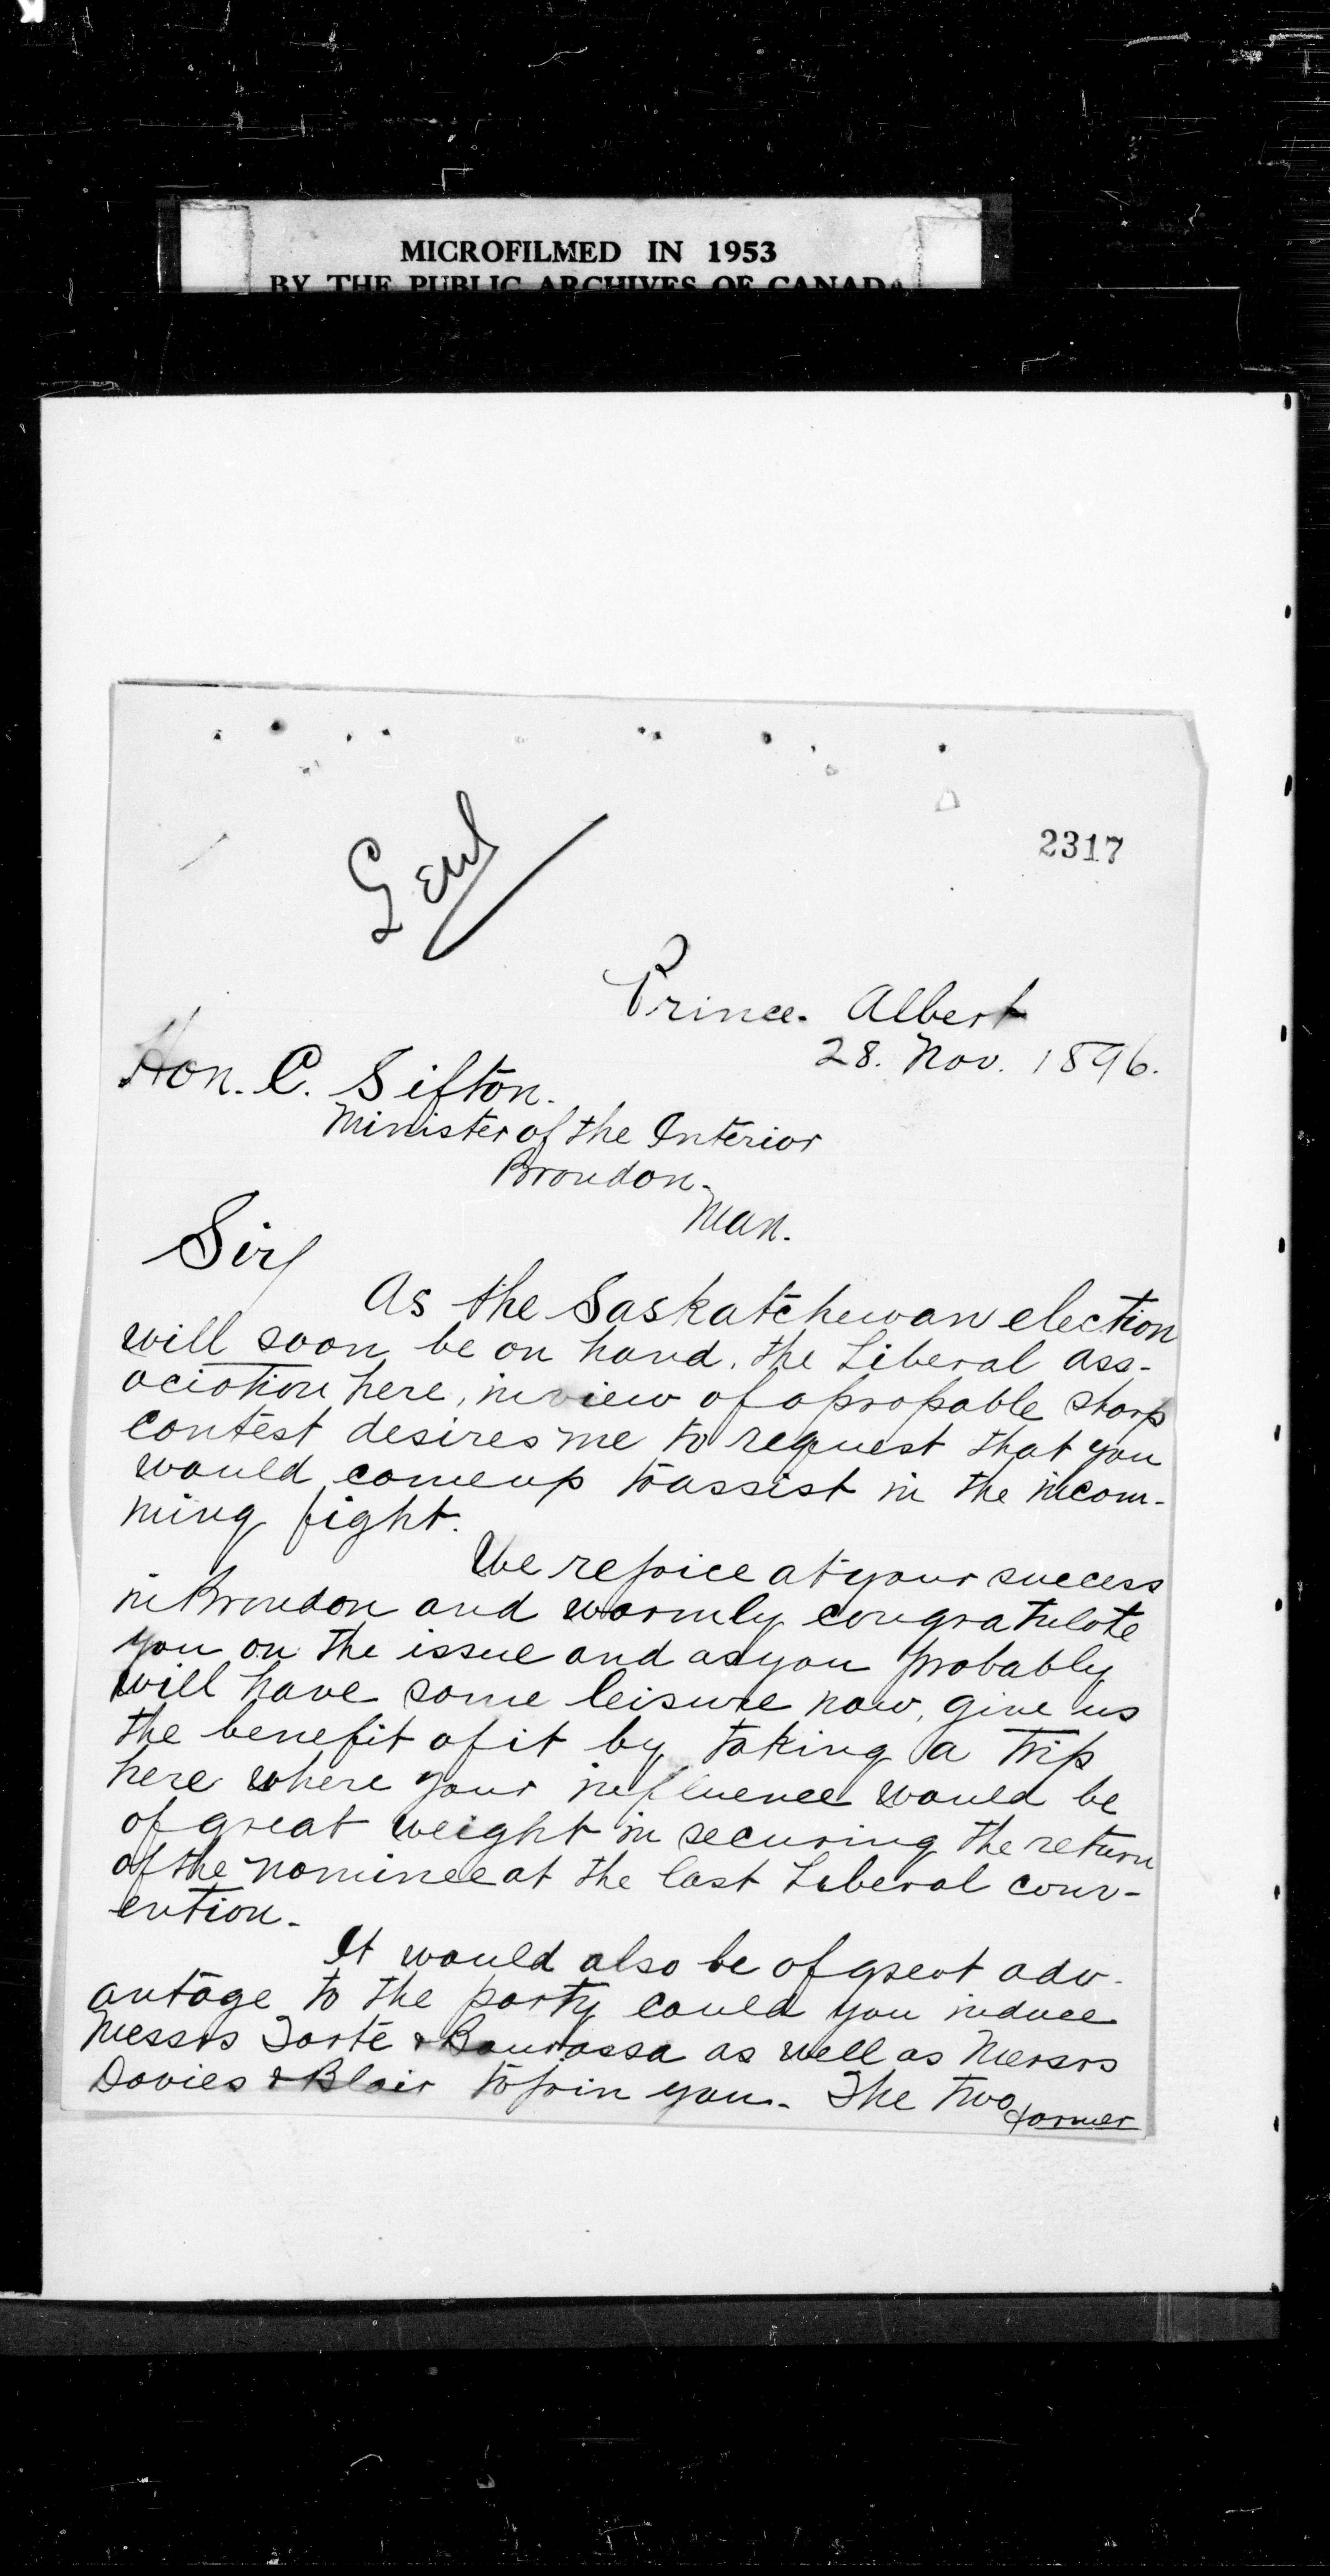 MICROFILMED IN 1953
BY THE PUBLIC ARCHIVES OF CANADA
2317
Genl
Prince. Albert
28. Nov. 1896.
Hon. C. Sifton.
Minister of the Interior
Brandon.
Man.
Sir/
As the Saskatchewan election
will soon be on hand, the Liberal ass-
ociation here, in view of a propable sharp
contest desires me to request that you
would come up to assist in the incom-
ming fight.
We rejoice at your success
in Brandon and warmly congratulate
you on the issue and as you probably
will have some leisure now, give us
the benefit of it by taking a trip
here where your influence would be
of great weight in securing the return
of the nominee at the last Liberal conv-
ention.
It would also be of great adv-
antage to the party could you induce
Messrs Tarte & Bourassa as well as Messrs
Davies & Blair to join you. The two
former